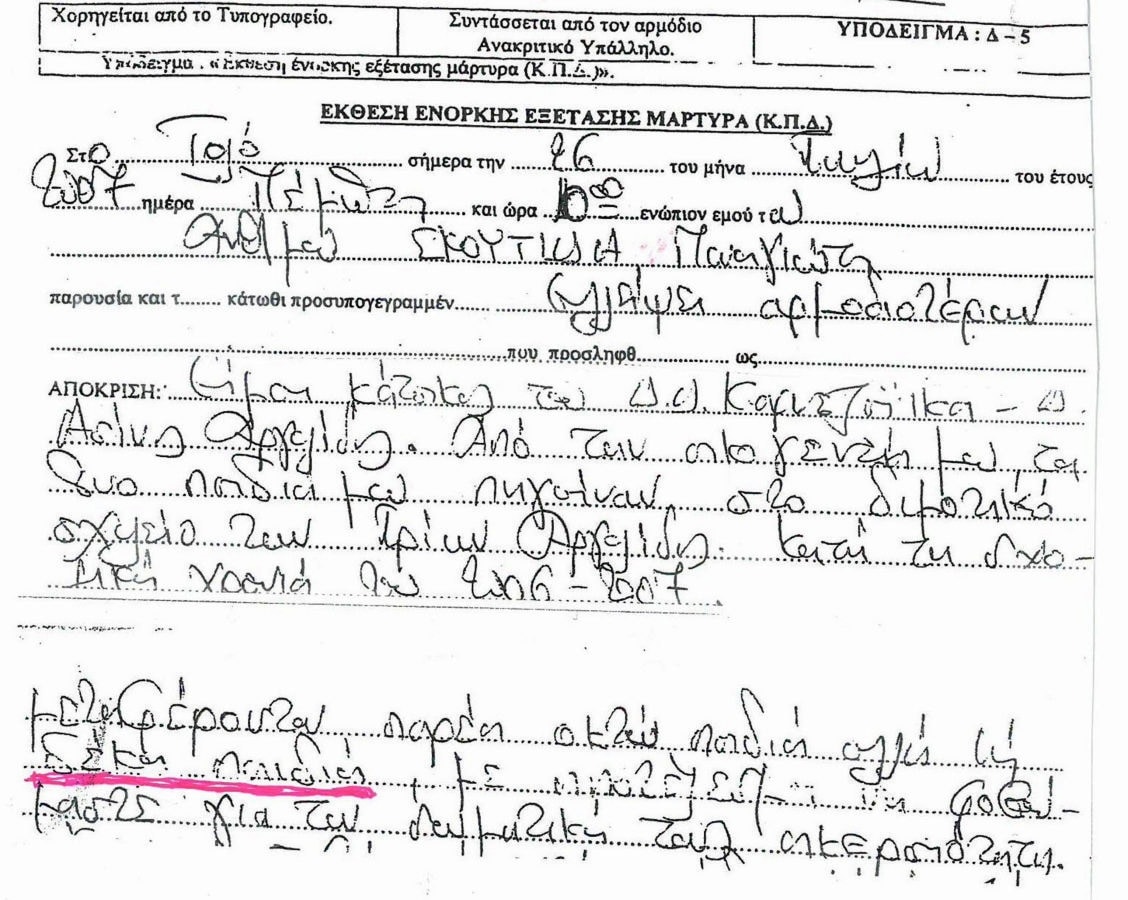 Χορηγείται από το Τυπογραφείο.
Συντάσσεται από τον αρμόδιο
Ανακριτικό Υπάλληλο.
ΥΠΟΔΕΙΓΜΑ : Δ – 5
Υπόδειγμα : «Έκθεση ένορκης εξέτασης μάρτυρα (Κ.Π.Δ.)».
ΕΚΘΕΣΗ ΕΝΟΡΚΗΣ ΕΞΕΤΑΣΗΣ ΜΑΡΤΥΡΑ (Κ.Π.Δ.)
Στο Τολό σήμερα την 26 του μήνα Ιουλίου του έτους
2007 ημέρα Πέμπτη και ώρα 10⁰⁰ ενώπιον εμού του
Ανθ/μου ΣΚΟΥΤΙΔΑ Παναγιώτη
παρουσία και τ........ κάτωθι προσυπογεγραμμέν.... ελλείψει αρμοδιοτέρου
που προσληφθ................ ως
ΑΠΟΚΡΙΣΗ: Είμαι κάτοικος του Δ.Δ. - Δ.
Ασίνης Αργολίδας. Από την οικογένειά μου, τα
δυο παιδιά μου πηγαίναν στο δημοτικό
σχολείο των Ιρίων Αργολίδας. Κατά τη σχο-
λική χρονιά του 2006 - 2007
μεταφέρονταν παρέα οκτώ παιδιά αλλά και
δέκα παιδιά, με αποτέλεσμα να φοβού-
μαστε για την σωματική τους ακεραιότητα.